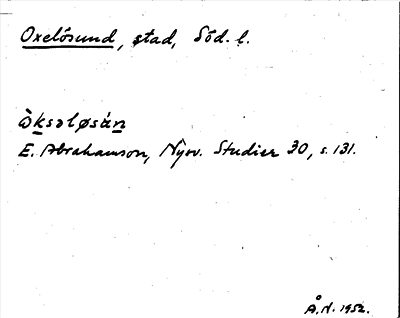 Oxelösund, stad, Söd. l.
òksəløsán
E. Abrahamson, Nysv. Studier 30, s. 131.
Å.N. 1952.